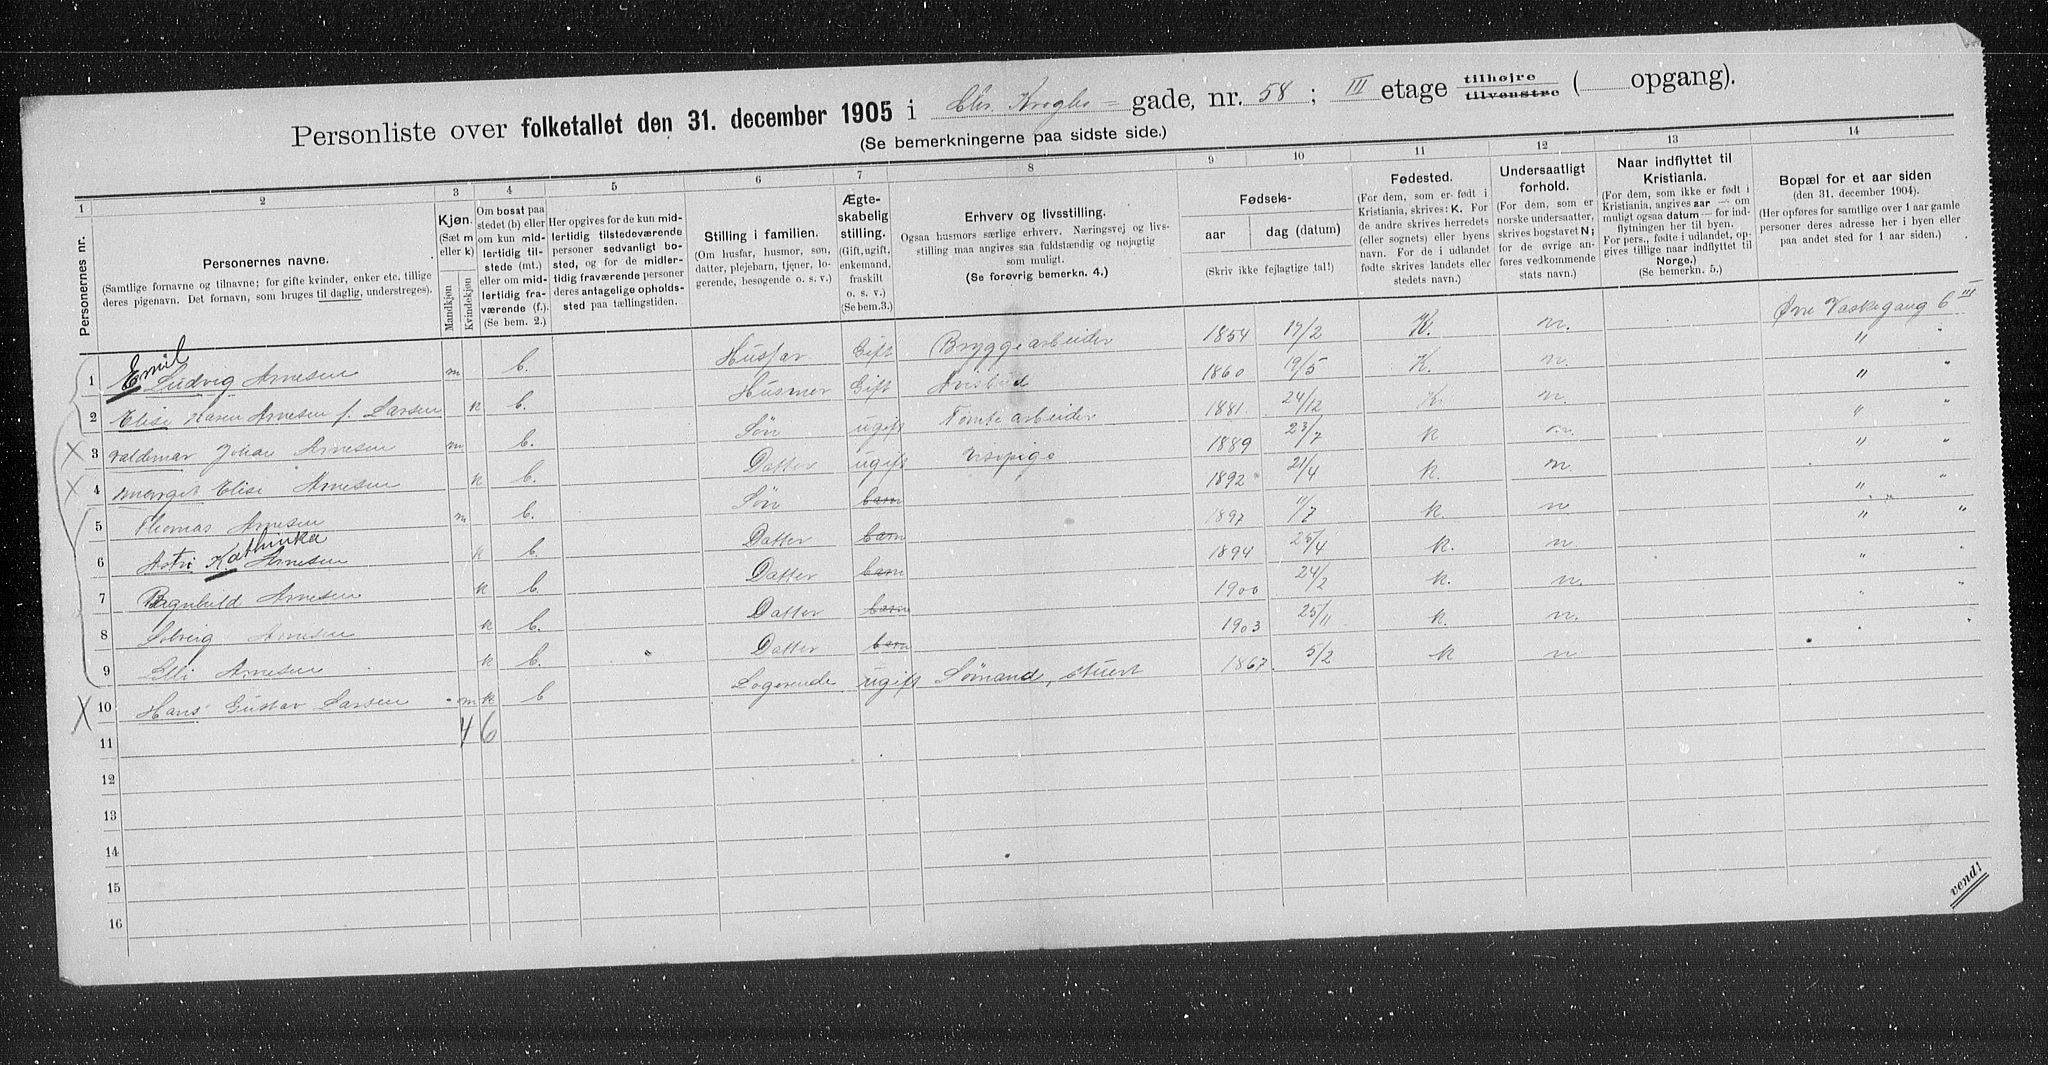 Personliste over folketallet den 31. december 1905 i Chr. Kroghs gade, nr. 58 ; III etage tilhøjre tilvenstre ( opgang).
(Se bemerkningerne paa sidste side.)
1 2 3 4 5 6 7 8 9 10 11 12 13 14
Personernes nr.
Personernes navne.
(Samtlige fornavne og tilnavne; for gifte kvinder, enker etc. tillige deres pigenavn. Det fornavn, som bruges til daglig, understreges).
Kjøn.
(Sæt m eller k)
Mandkjøn
Kvindekjøn
Om bosat paa stedet (b) eller om kun midlertidig tilstede (mt.) eller om midlertidig fraværende (f.). (Se bem. 2.)
Her opgives for de kun midlertidig tilstedeværende personer sedvanligt bosted, og for de midlertidig fraværende personer deres antagelige opholdssted paa tællingstiden.
Stilling i familien.
(Om husfar, husmor, søn, datter, plejebarn, tjener, logerende, besøgende o. s. v.)
Ægteskabelig stilling.
(Gift, ugift, enkemand, fraskilt o. s. v.) (Se bem.3.)
Erhverv og livsstilling.
Ogsaa husmors særlige erhverv. Næringsvej og livsstilling maa angives saa fuldstændig og nøjagtig som muligt.
(Se forøvrig bemerkn. 4.)
Fødsels-
aar dag (datum)
(Skriv ikke fejlagtige tal!)
Fødested.
(For dem, som er født i Kristiania, skrives: K. For de andre skrives herredets (eller sognets) eller byens navn. For de i udlandet fødte skrives landets eller stedets navn.)
Undersaatligt forhold.
(For dem, som er norske undersaatter, skrives bogstavet N; for de øvrige anføres vedkommende stats navn.)
Naar indflyttet til Kristiania.
(For dem, som ikke er født i Kristiania, angives aar — om muligt ogsaa datum — for indflytningen her til byen. For pers., fødte i udlandet, opgives tillige naar indflyttet til Norge.) (Se bemerkn. 5.)
Bopæl for et aar siden
(den 31. december 1904).
(Her opføres for samtlige over 1 aar gamle personer deres adresse her i byen eller paa andet sted for 1 aar siden.)
1 Emil Ludvig Arnesen m b. Husfar Gift Bryggearbeider 1854 17/2 K. n. Øvre Vaskegang 6 III
2 Elise Karen Arnesen f. Larsen k b. Husmor Gift Avisbud 1860 19/5 K. n. " "
3 Valdemar Johan Arnesen m b. Søn ugift Tomtearbeider 1881. 24/12 K n. " "
4 Margit Elise Arnesen k b. Datter ugift Visepige 1889 23/7 k n. " "
5 Thomas Arnesen m b. Søn barn 1892 21/4 k. n. " "
6 Astri Kathinka Arnesen k b. Datter barn 1897 11/7 k n " "
7 Ragnhild Arnesen k b. Datter barn 1894 25/4 k. n. " "
8 Solveig Arnesen k b. Datter barn 1900 24/2 k. n. " "
9 Elli Arnesen k b. Datter barn 1903 25/11 k. n. " "
10 Hans Gustav Larsen m k b Logerende ugift Sømand, stuert 1867 5/2 k n " "
11 4 6
12
13
14
15
16
vend!